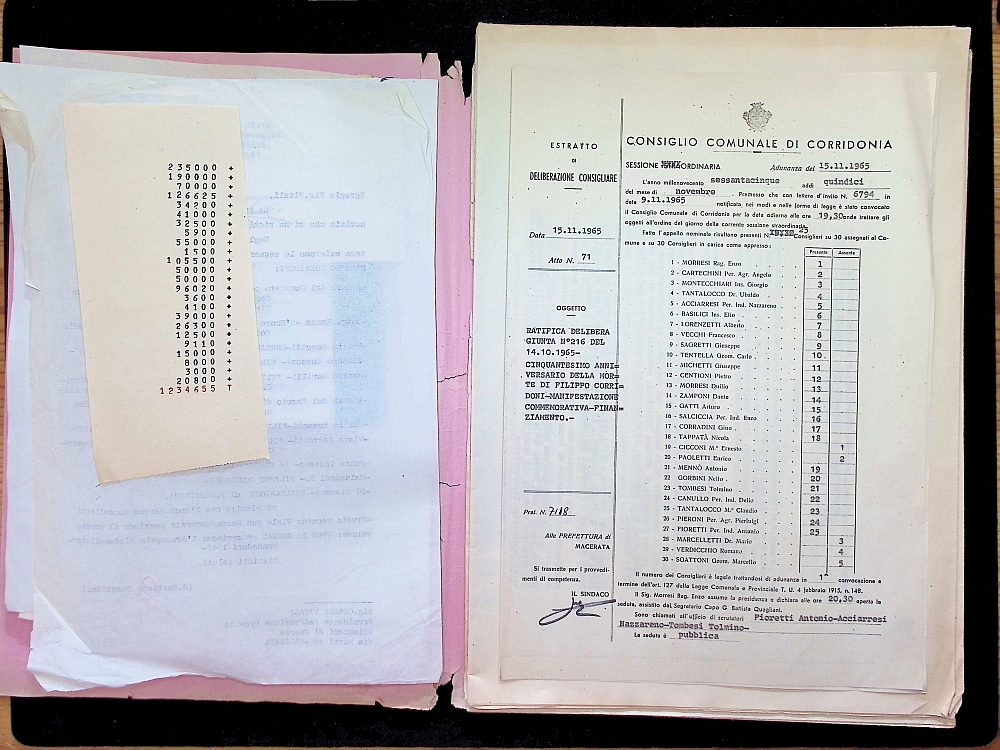 235000 +
190000 +
70000 +
126625 +
34200 +
41000 +
32500 +
5900 +
55000 +
1500 +
105500 +
50000 +
50000 +
96020 +
3600 +
4100 +
39000 +
26300 +
12500 +
9110 +
15000 +
8000 +
3000 +
20800 +
1234655 T
ESTRATTO
DI
DELIBERAZIONE CONSIGLIARE
Data 15.11.1965
Atto N. 71
OGGETTO
RATIFICA DELIBERA
GIUNTA N°216 DEL
14.10.1965-
CINQUANTESIMO ANNI=
VERSARIO DELLA MOR=
TE DI FILIPPO CORRI=
DONI-MANIFESTAZIONE
COMMEMORATIVA-FINAN=
ZIAMENTO.-
Prot. N. 7118
Alle PREFETTURA di
MACERATA
Si trasmette per i provvedi-
menti di competenza.
IL SINDACO
CONSIGLIO COMUNALE DI CORRIDONIA
SESSIONE STRAORDINARIA Adunanza del 15.11.1965
L'anno millenovecento sessantacinque addì quindici
del mese di novembre Premesso che con lettera d'invito N. 6794 in
data 9.11.1965 notificata nei modi e nelle forme di legge è stato convocato
il Consiglio Comunale di Corridonia per la data odierna alle ore 19,30 onde trattare gli
oggetti all'ordine del giorno della corrente sessione straordinaria
Fatto l'appello nominale risultano presenti N. 25 Consiglieri su 30 assegnati al Co-
mune e su 30 Consiglieri in carica come appresso:
Presente Assente
1 - MORRESI Rag. Enzo 1
2 - CARTECHINI Per. Agr. Angelo 2
3 - MONTECCHIARI Ins. Giorgio 3
4 - TANTALOCCO Dr. Ubaldo 4
5 - ACCIARRESI Per. Ind. Nazzareno 5
6 - BASILICI Ins. Elio 6
7 - LORENZETTI Alberto 7
8 - VECCHI Francesco 8
9 - SAGRETTI Giuseppe 9
10 - TENTELLA Geom. Carlo 10
11 - MICHETTI Giuseppe 11
12 - CENTIONI Pietro 12
13 - MORRESI Duilio 13
14 - ZAMPONI Dante 14
15 - GATTI Arturo 15
16 - SALCICCIA Per. Ind. Enzo 16
17 - CORRADINI Gino 17
18 - TAPPATÀ Nicola 18
19 - CICCONI M.° Ernesto 1
20 - PAOLETTI Enrico 2
21 - MENNÒ Antonio 19
22 GORBINI Nello 20
23 - TOMBESI Tolmino 21
24 - CANULLO Per. Ind. Delio 22
25 - TANTALOCCO M.° Claudio 23
26 - PIERONI Per. Agr. Pierluigi 24
27 - FIORETTI Per. Ind. Antonio 25
28 - MARCELLETTI Dr. Mario 3
29 - VERDICCHIO Romano 4
30 - SGATTONI Geom. Marcello 5
Il numero dei Consiglieri è legale trattandosi di adunanza in 1^ convocazione a
termine dell'art. 127 della Legge Comunale e Provinciale T. U. 4 febbraio 1915, n. 148.
Il Sig. Morresi Rag. Enzo assume la presidenza e dichiara alle ore 20,30 aperta la
seduta, assistito dal Segretario Capo G. Battista Quagliani.
Sono chiamati all'ufficio di scrutatori Fioretti Antonio-Acciarresi
Nazzareno-Tombesi Tolmino-
La seduta è pubblica